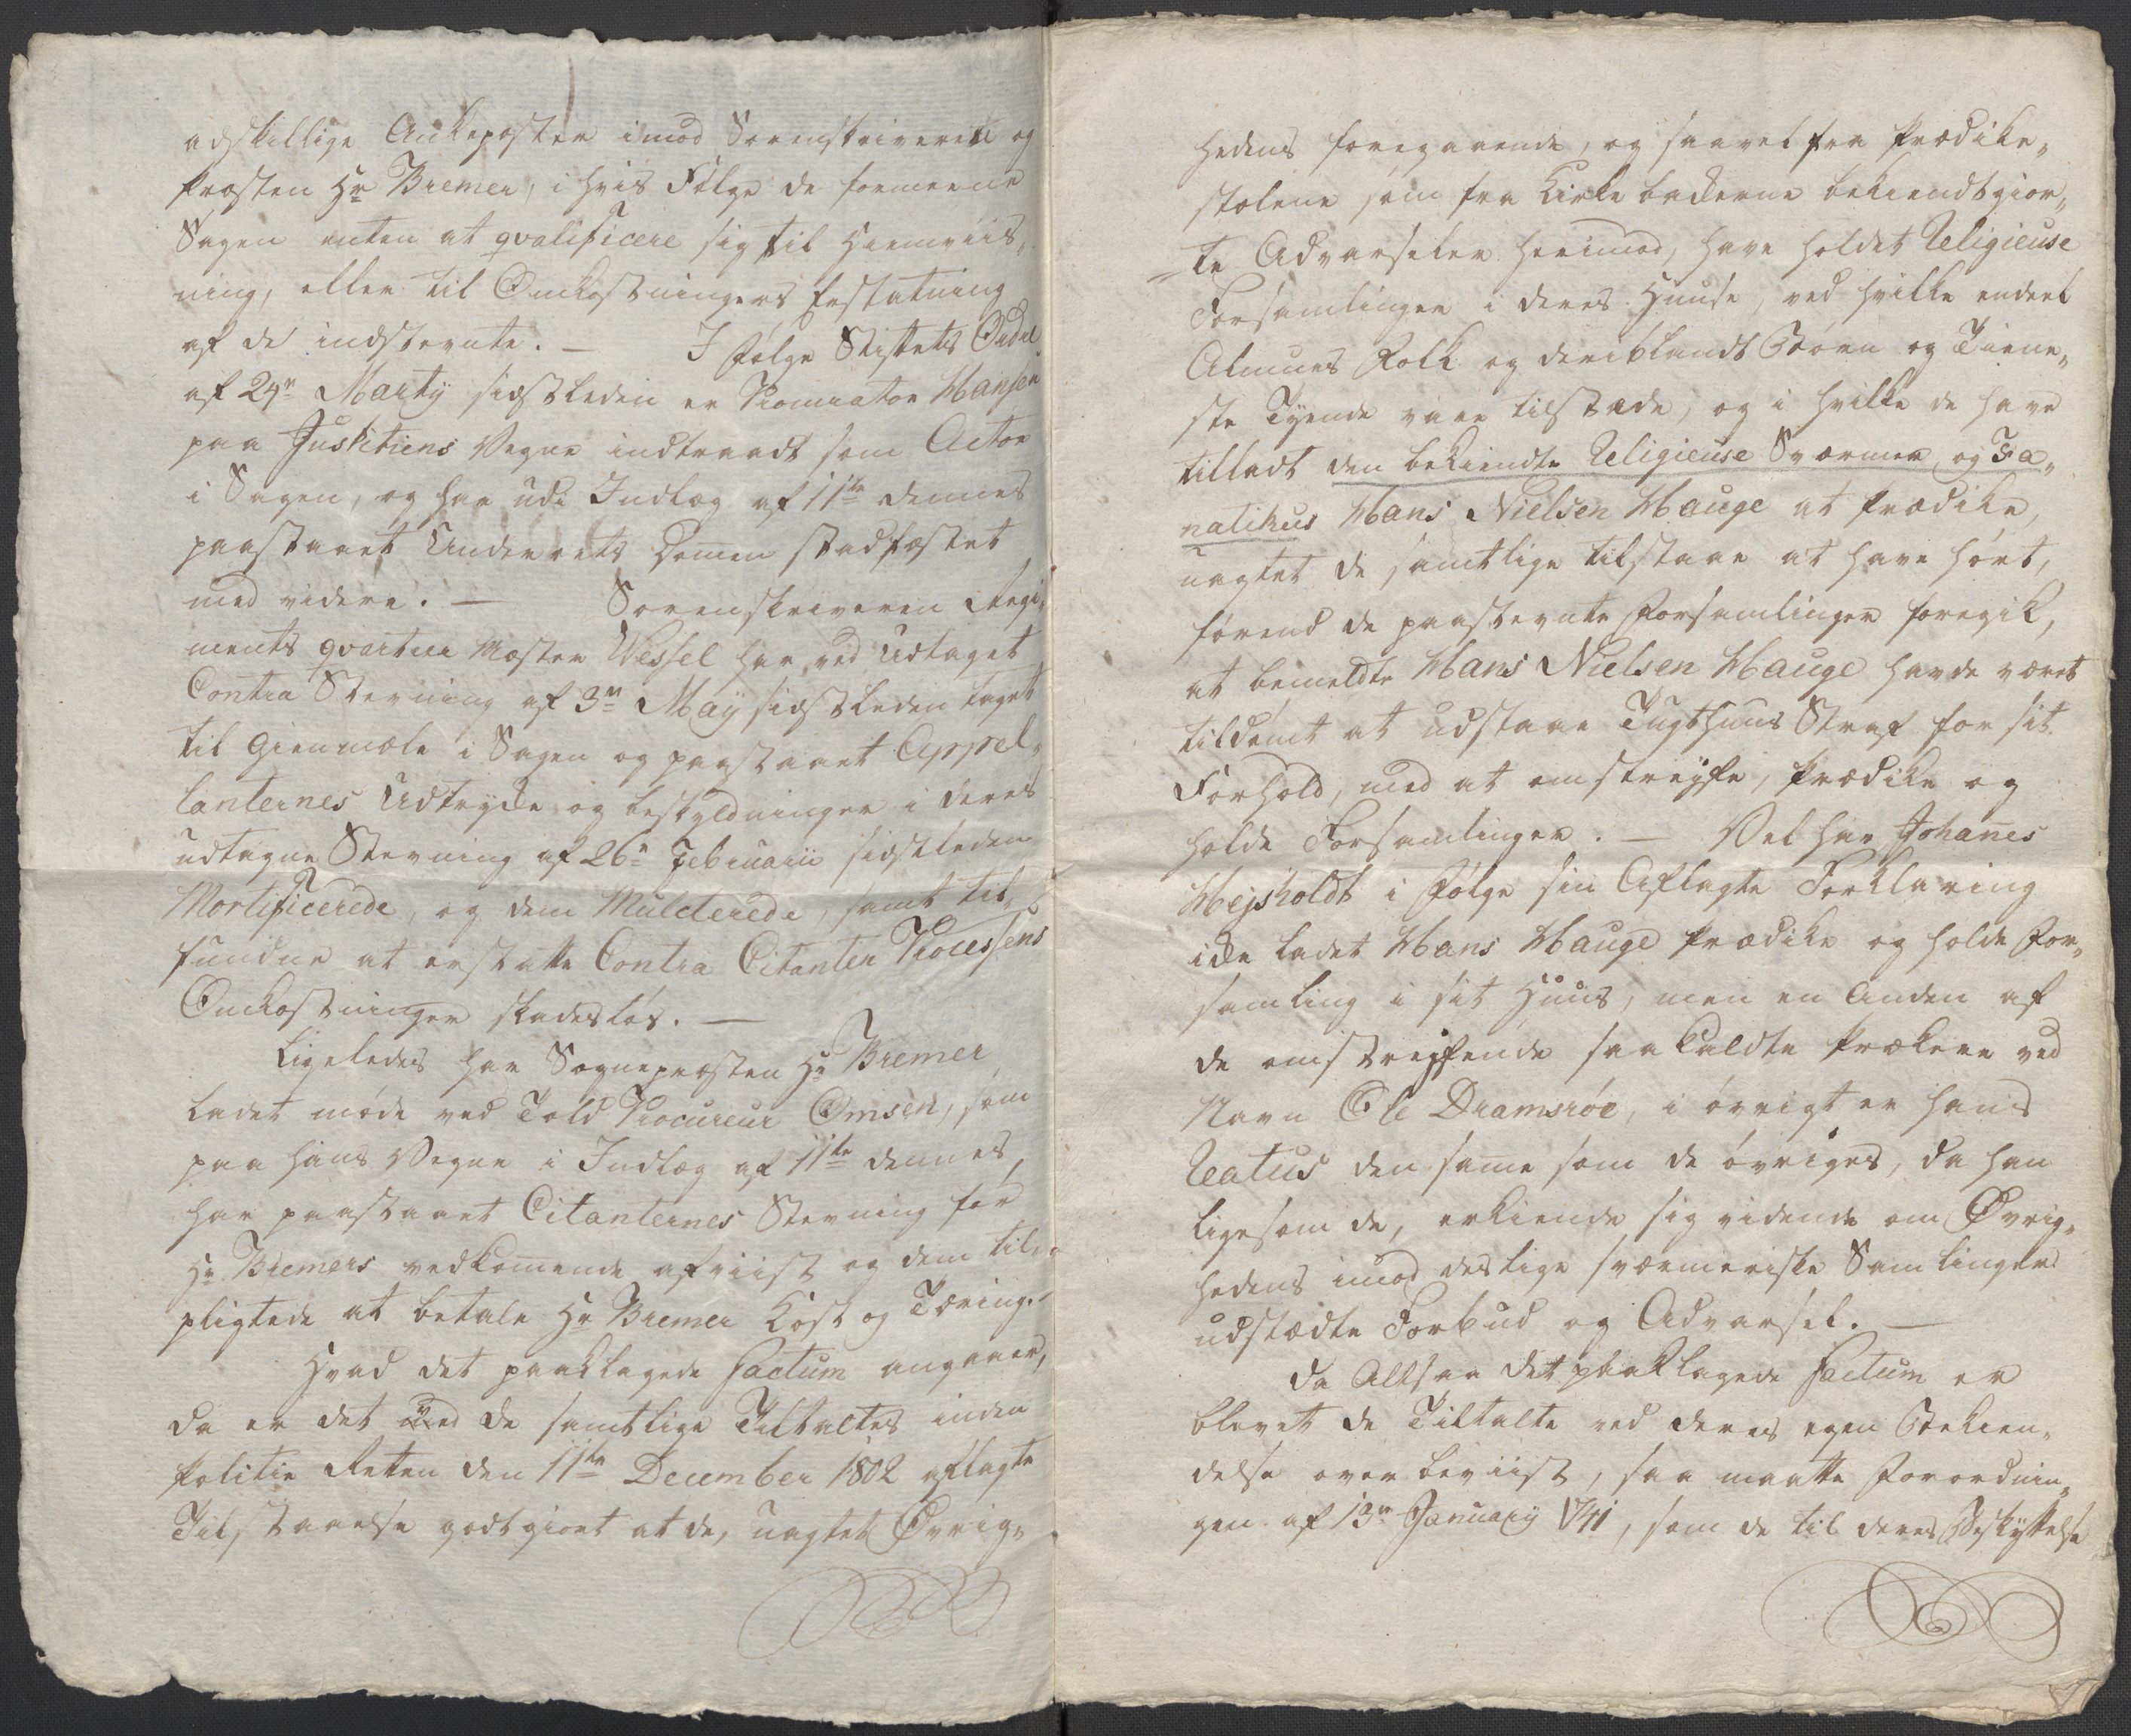 adskillige Ankeposter imod Sorenskriveren og
Præsten Hr Bremer, i hvis Følge de formeene
Sagen enten at qvalificere sig til Hiemviis„
ning, eller til Omkostningers Erstatning
af de indstevnte. — I følge Stiftets Ordre
af 24n Martij sidstleden er Procurator Hansen
paa Justitiens Vegne indtraadt som Actor
i Sagen, og har udi Indlæg af 11te dennes
paastaaet Underrets Domen stadfæstet
med videre. — Sorenskriveren Regi„
ments qvarteer Mester Wessel har ved udtaget
Contra Stevning af 3n Maij sidstleden taget
til Gienmæle i Sagen og paastaaet Appel„
lanternes Udtrykke og beskyldninger i deres
udtagne Stevning af 26n Februarii sidstleden
Mortificerede, og dem Mulcterede, samt til„
fundne at erstatte Contra Citanten Processens
Omkostninger skadesløs. —
Ligeledes har Sognepræsten Hr Bremer
ladet møde ved Told Procureur Omsen, som
paa hans Vegne i Indlæg af 11te dennes,
har paastaaet Citanternes Stevning for
Hr Bremers vedkomende afviist og dem til„
pligtede at betale Hr Bremer Kost og Tæring.
Hvad det paaklagede factum angaaer,
da er det ved de samtlige Tiltaltes inden
Politie Retten den 11te December 1802 aflagte
Tilstaaelse godtgiort at de, uagtet Øvrig„
hedens foregaaende, og saavel fra Prædike„
stolene som fra Kirke bakkerne bekiendtgior„
te Advarseler herimod, have holdet Religieuse
Forsamlinger i deres Huuse, ved hvilke endeel
Almues Folk og deriblandt Børn og Tiene„
ste Tyende vare tilstæde, og i hvilke de have
tilladt den bekiendte Religieuse Sværmer og Fa„
natikus Hans Nielsen Hauge at prædike,
uagtet de samtlige tilstaae at have hørt,
førend de paastevnte Forsamlinger foregik,
at bemeldte Hans Nielsen Hauge havde været
tildømt at udstaae Tugthuus Straf for sit
Forhold, med at omstrejfe, prædike og
holde Forsamlinger. — Vel har Johanes
Hejsholdt i følge sin Aflagte Forklaring
ikke ladet Hans Hauge prædike og holde For„
samling i sit Huus, men en Anden af
de omstrejfende saakaldte Prækere ved
Navn Ole Dramsrøe, i øvrigt er hans
Reatus den same som de øvriges, da han
ligesom de, erkiende sig vidende om Øvrig„
hedens imod deslige sværmeriske Samlinger
udstædte Forbud og Advarsel. —
Da Altsaa det paaklagede factum er
blevet de Tiltalte ved deres egen Bekien„
delse overbeviist, saa maatte Forordnin„
gen af 13n Januarij 1741, som de til deres Beskyttelse